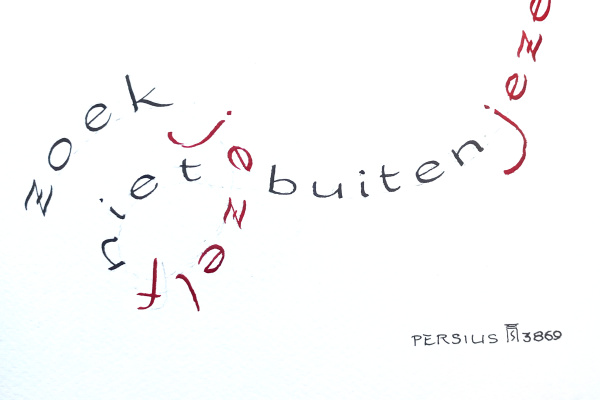 zoek jezelf niet buiten jeze
PERSIUS 3869